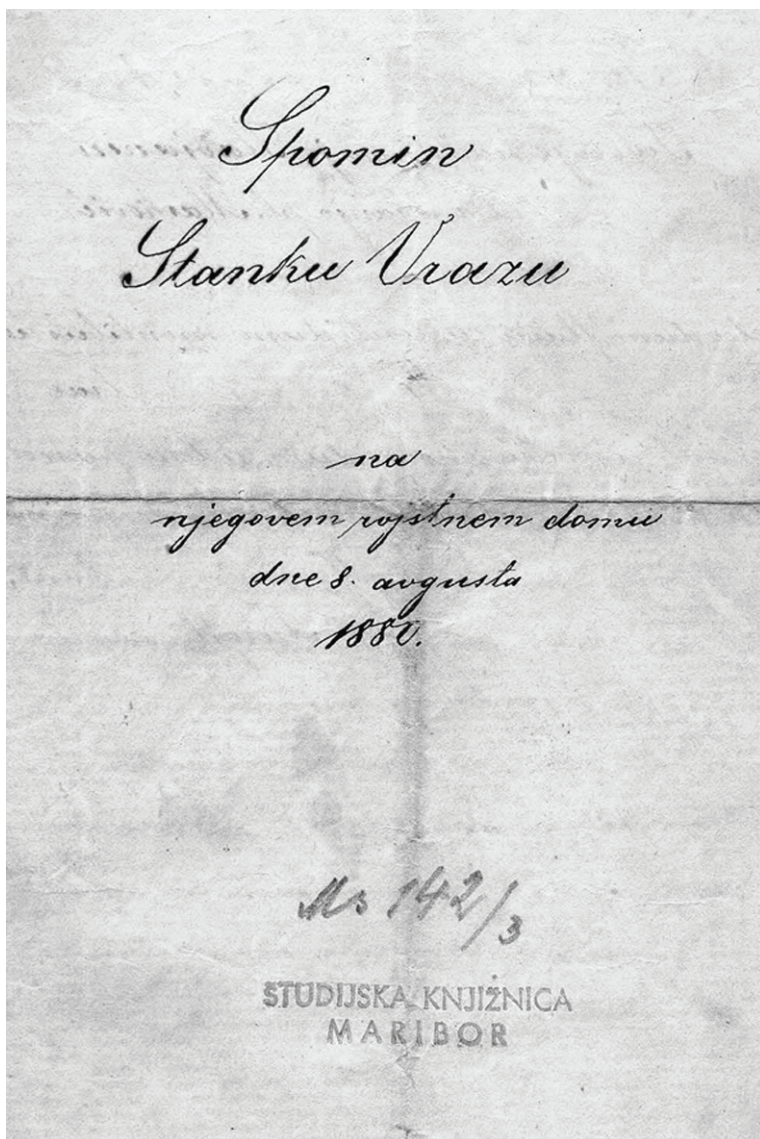 Spomin
Stanku Vrazu
na
njegovem rojstnem domu
dne 8. avgusta
1880.
Ms 142/3
ŠTUDIJSKA KNJIŽNICA
MARIBOR